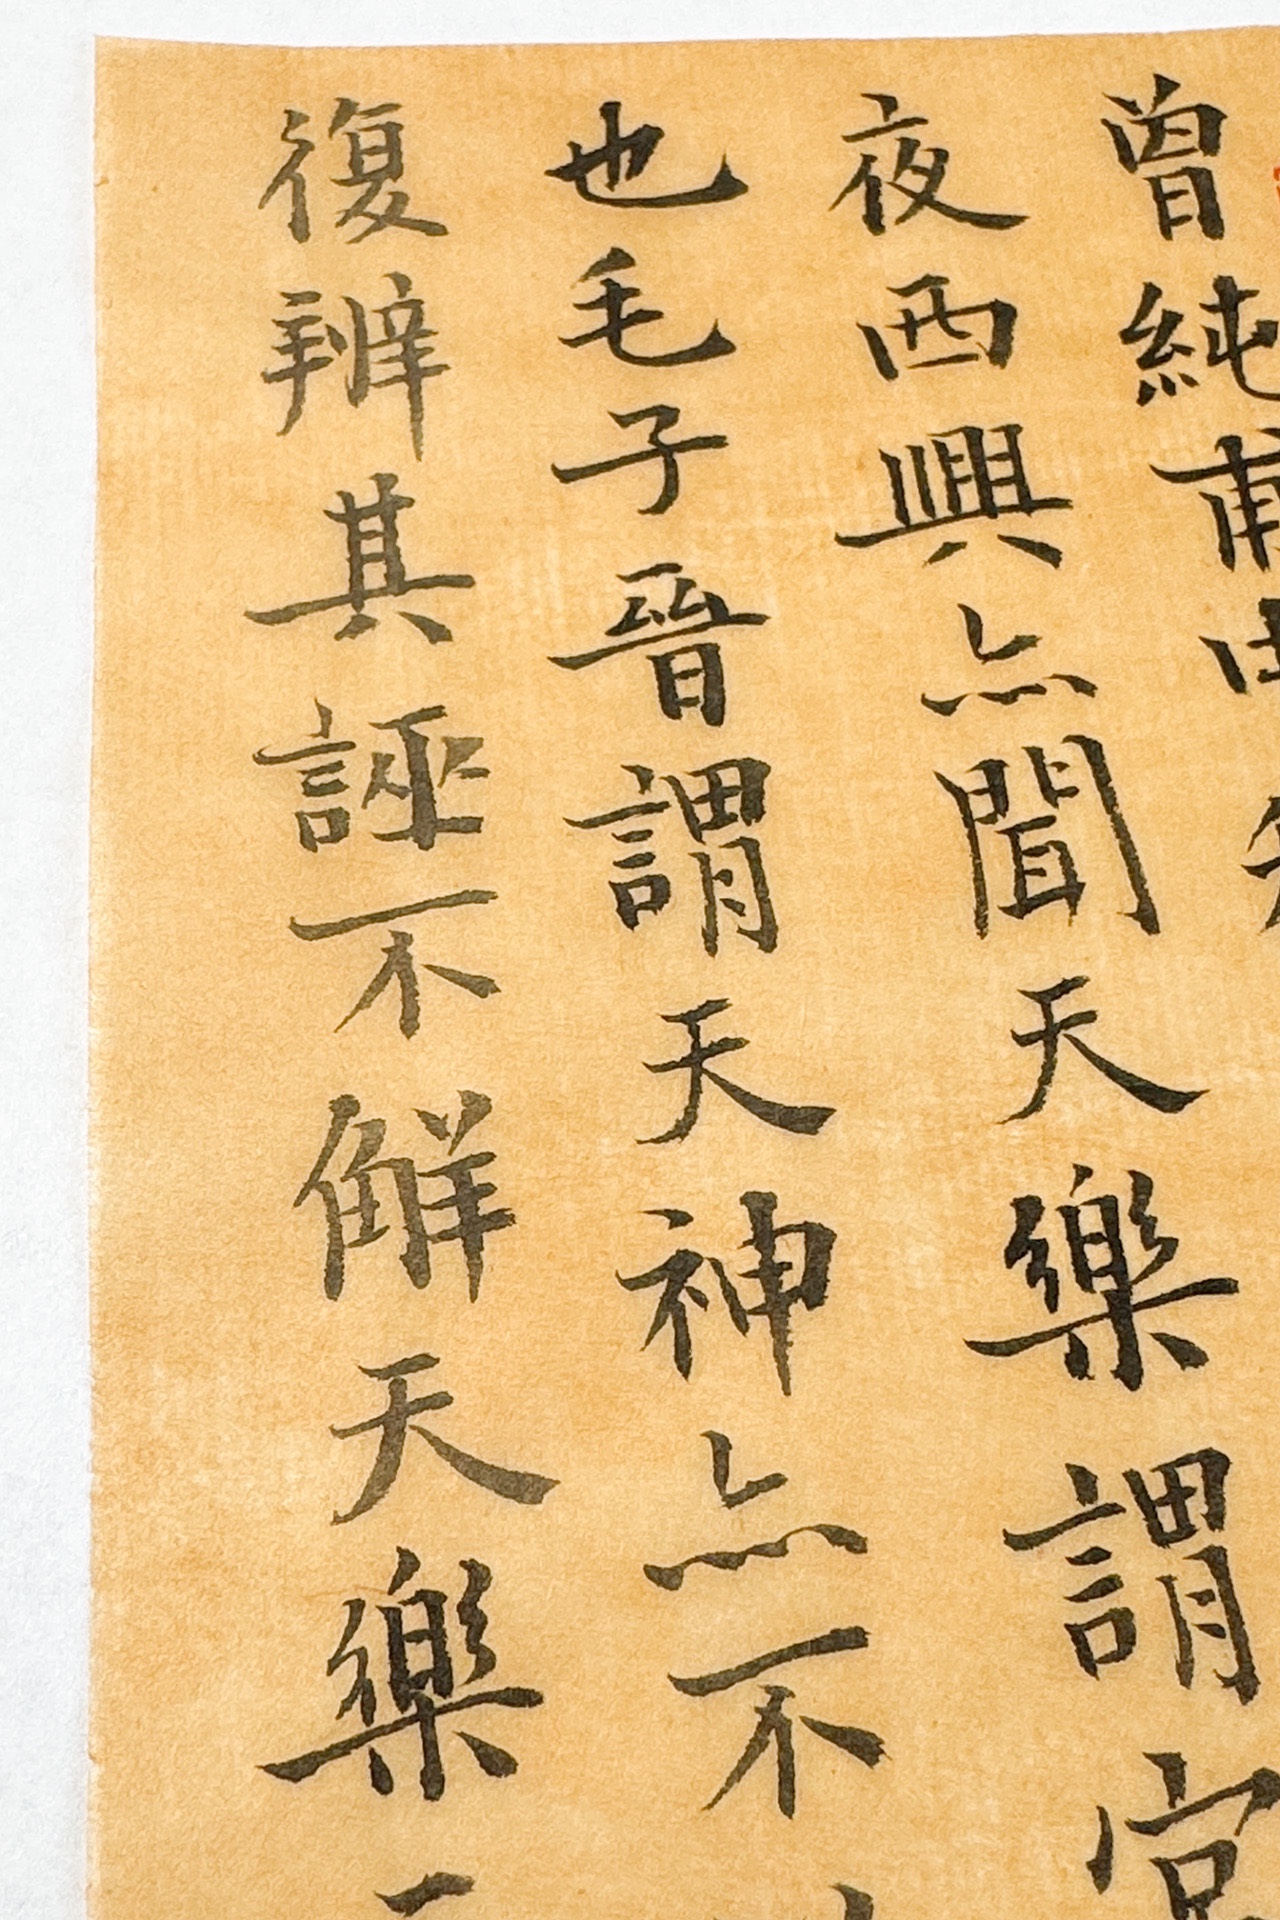 曾純甫中
夜西興亦聞天樂謂宮
也毛子晉謂天神亦不
復辨其誣不解天樂